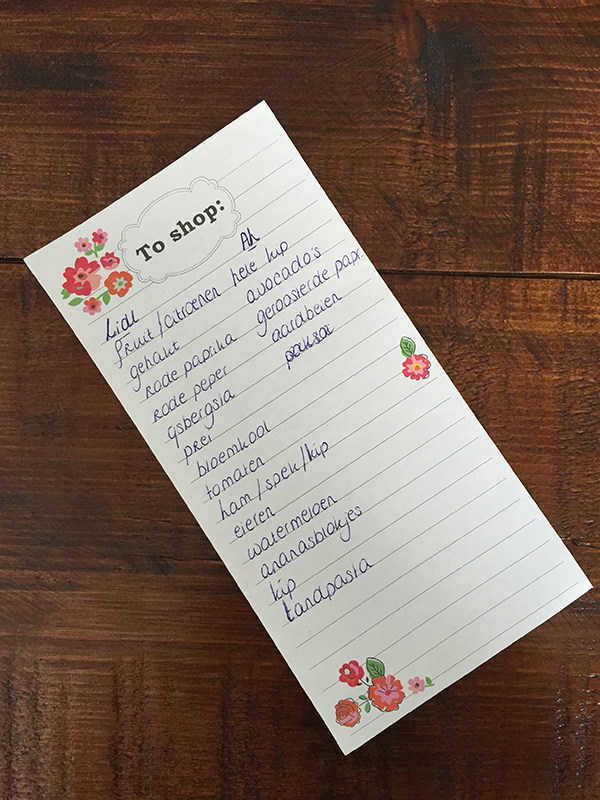 To shop:
Lidl
fruit/citroenen
gehakt
rode paprika
rode peper
ijsbergsla
prei
bloemkool
tomaten
ham/spek/kip
eieren
watermeloen
ananasblokjes
kip
tandpasta
Ah
hele kip
avocado's
geroosterde papr.
aardbeien
paksoi